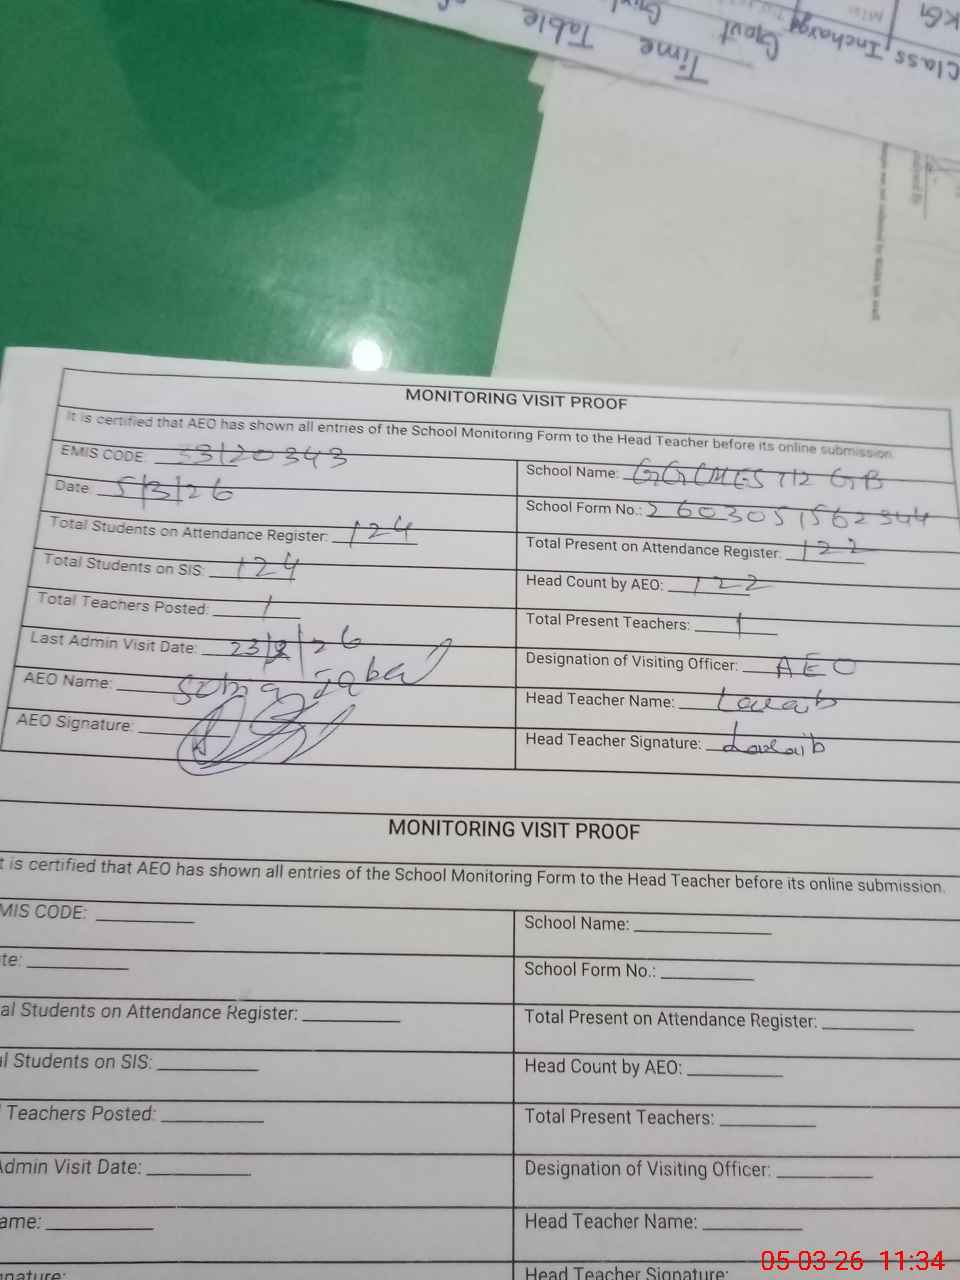 Class Incharge
Time Table
Govt
MONITORING VISIT PROOF
It is certified that AEO has shown all entries of the School Monitoring Form to the Head Teacher before its online submission.
EMIS CODE: 33120343
School Name: GGCMES 712 GB
Date: 5/3/26
School Form No.: 2603051562344
Total Students on Attendance Register: 124
Total Present on Attendance Register: 122
Total Students on SIS: 124
Head Count by AEO: 122
Total Teachers Posted: 1
Total Present Teachers: 1
Last Admin Visit Date: 23/2/26
Designation of Visiting Officer: AEO
AEO Name: Iqbal
Head Teacher Name: Laraib
AEO Signature:
Head Teacher Signature: Laraib
MONITORING VISIT PROOF
t is certified that AEO has shown all entries of the School Monitoring Form to the Head Teacher before its online submission.
MIS CODE:
School Name:
te:
School Form No.:
al Students on Attendance Register:
Total Present on Attendance Register:
l Students on SIS:
Head Count by AEO:
Teachers Posted:
Total Present Teachers:
Admin Visit Date:
Designation of Visiting Officer:
ame:
Head Teacher Name:
nature:
Head Teacher Signature:
05-03-26 11:34